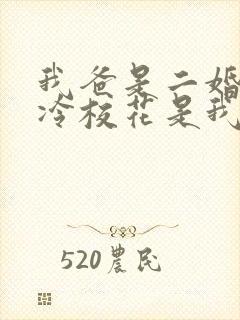 我爸是二婚
冷校花是我
520農民